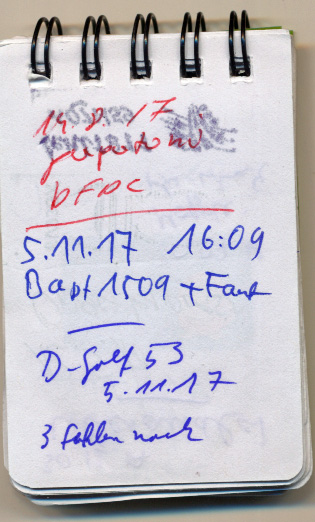 14.8.17
DFDC
5.11.17 16:09
Bapt 1509 + Fant
D-Golf 53
5.11.17
3 fehlen noch